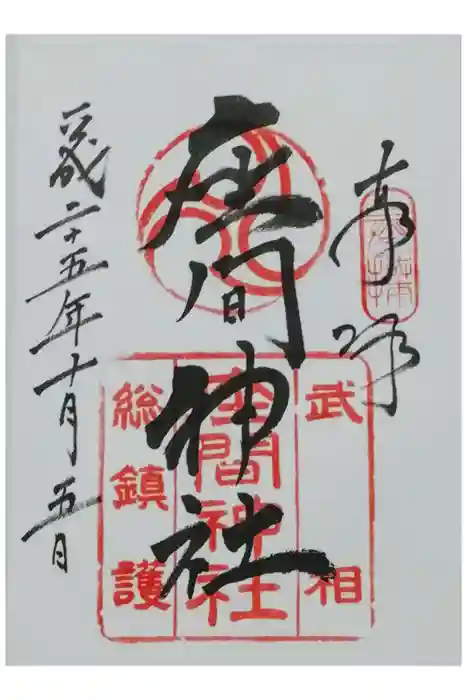 奉拝
武相
座間神社
座間神社
総鎮護
平成二十五年十月五日